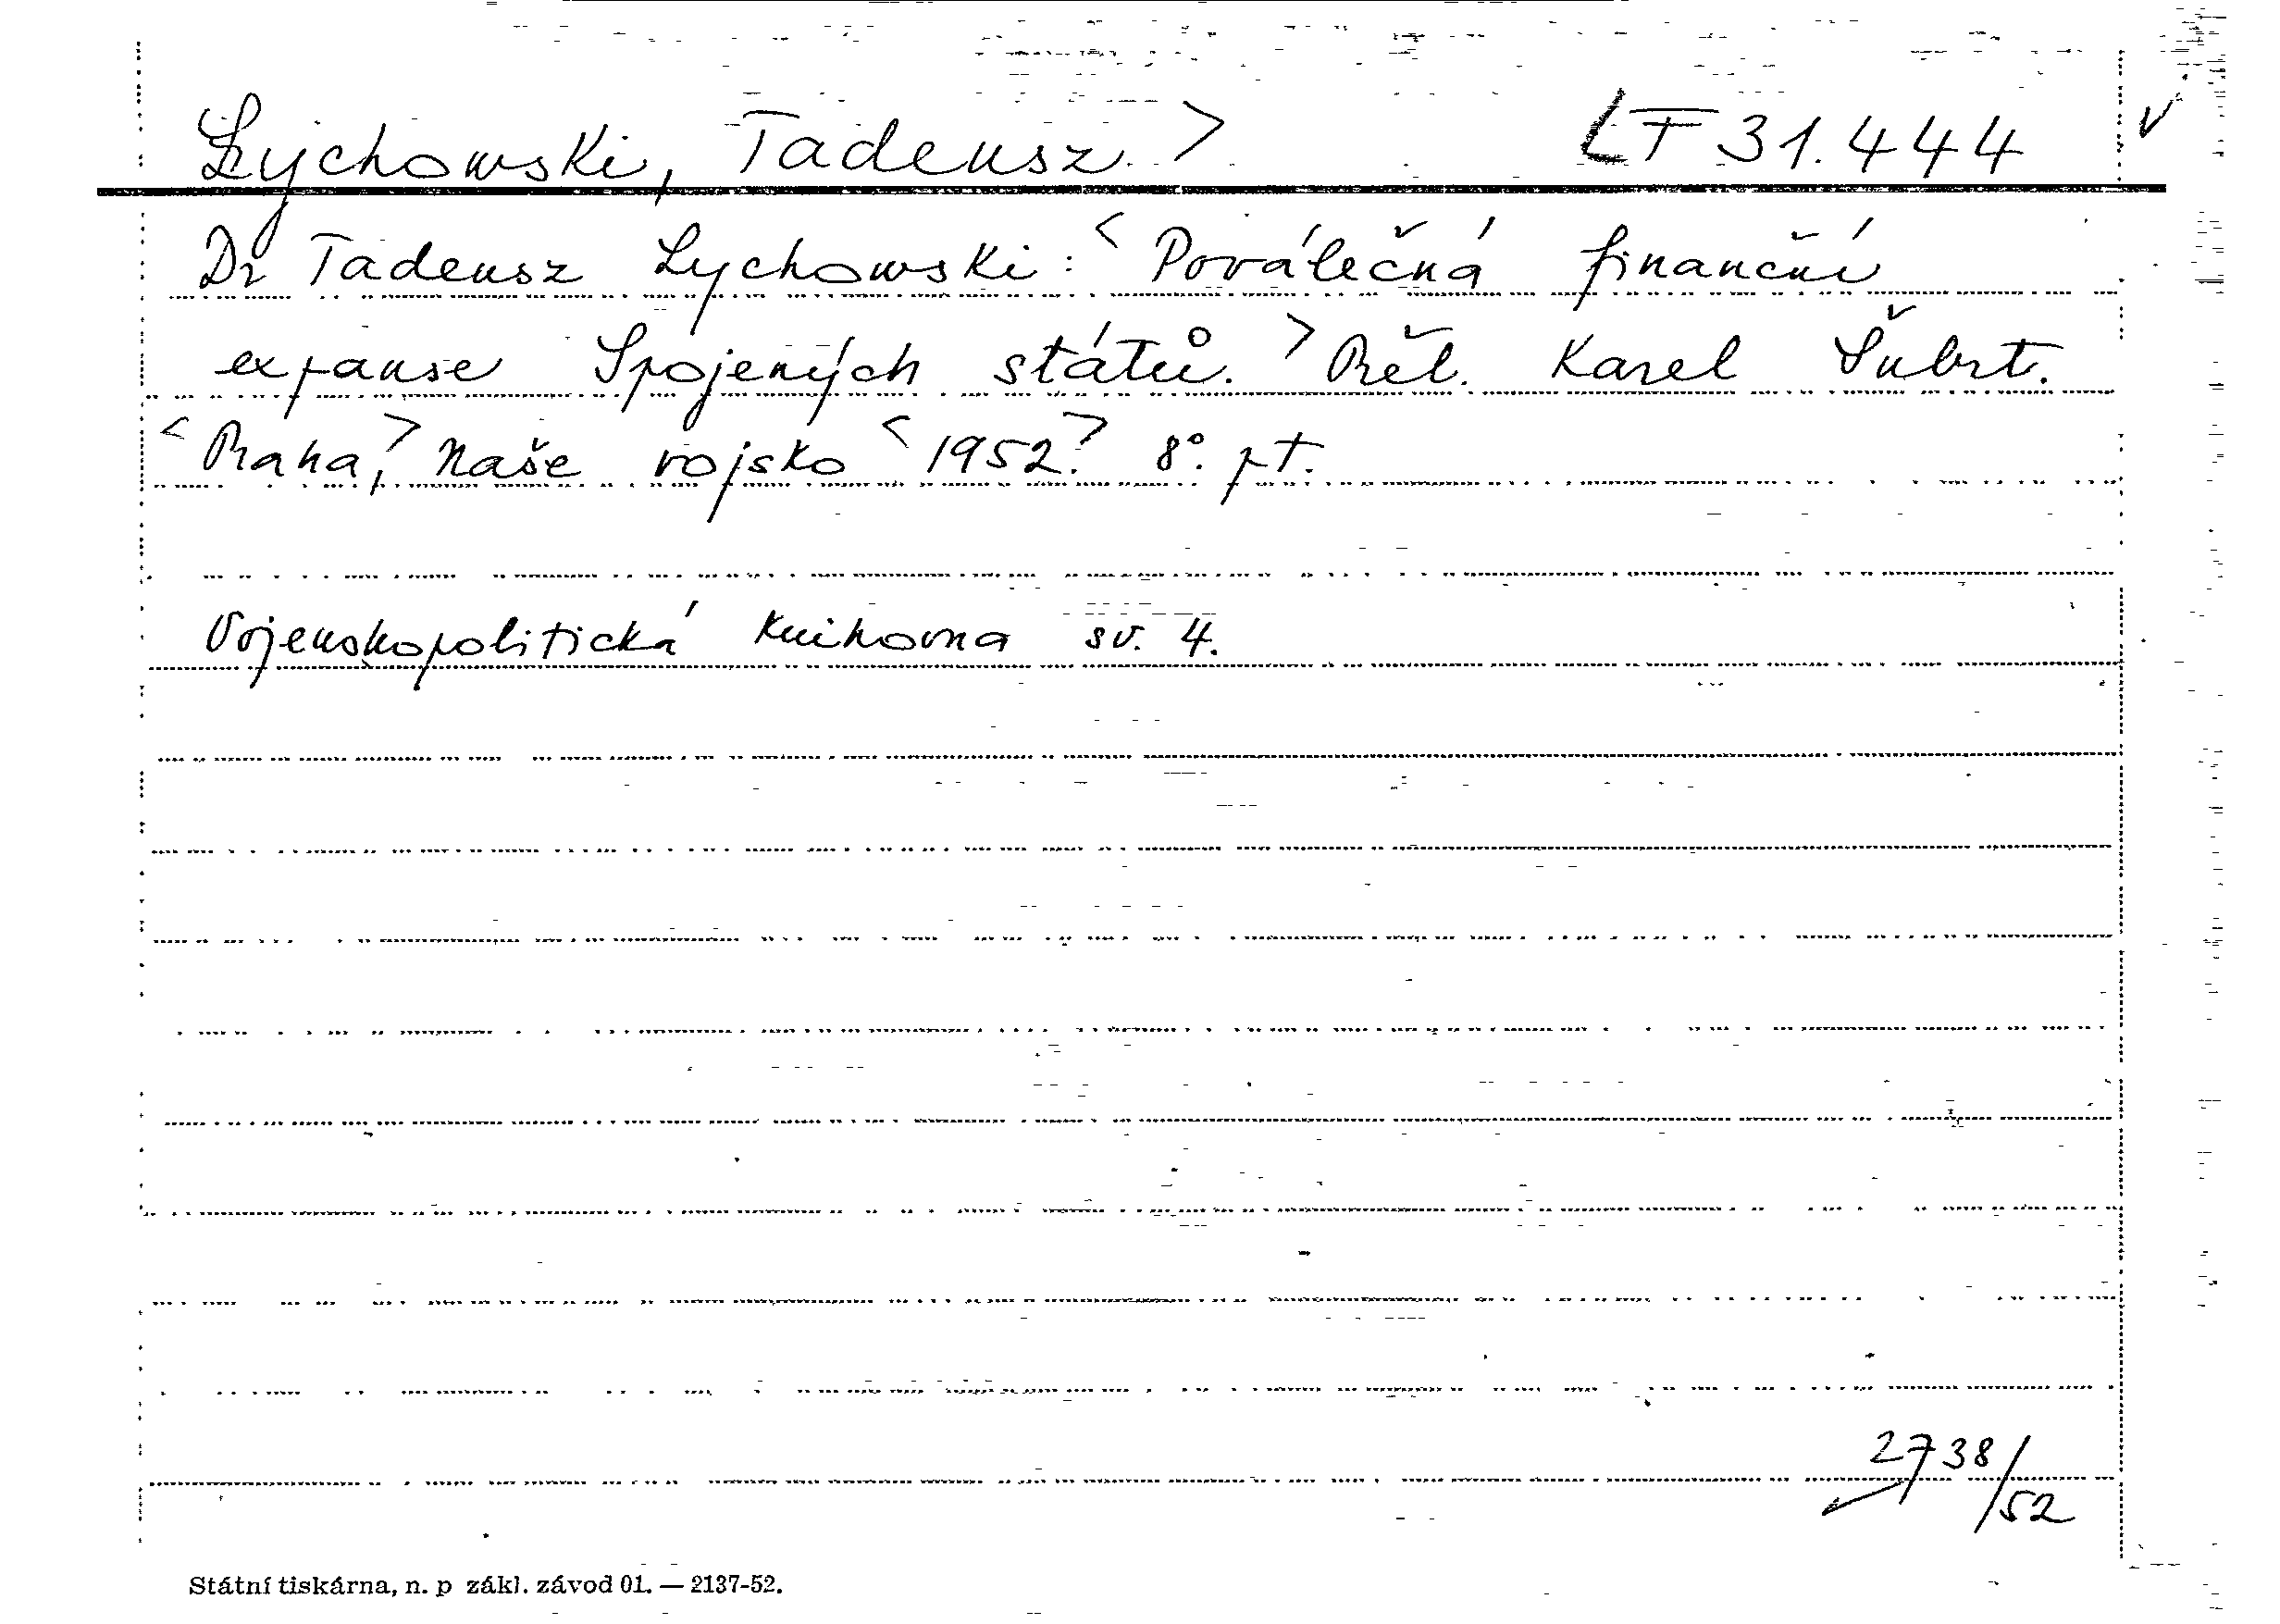 Lychowski, Tadeusz > LT 31.444 v
Dr Tadeusz Lychowski: < Poválečná finanční
expanse Spojených států. > Přel. Karel Šubrt.
< Praha, > Naše vojsko < 1952. > 8°. pt.
Vojenskopolitická knihovna sv. 4.
2738/52
Státní tiskárna, n. p zákl. závod 01. — 2137-52.